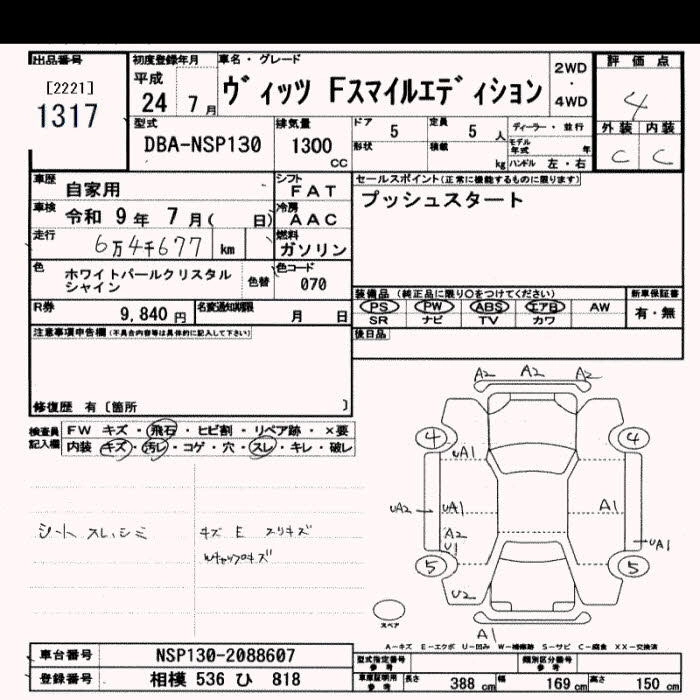 出品番号 初度登録年月 車名・グレード 評価点
[2221] 平成 2WD
1317 24 7月 ヴィッツ Fスマイルエディション ・ 4
4WD
型式 排気量 ドア 5 定員 5人 ディーラー・並行 外装 内装
DBA-NSP130 1300 CC 形状 積載 kg モデル年式 年 C C
ハンドル 左・右
車歴 自家用 シフト FAT セールスポイント(正常に機能するものに限ります)
車検 令和 9年 7月( 日) 冷房 AAC プッシュスタート
走行 6万4千677 km 燃料 ガソリン
色 ホワイトパールクリスタル 色替 色コード
シャイン 070
装備品 (純正品に限り○をつけてください) 新車保証書
R券 9,840円 名変通知期限 月 日 PS PW ABS エアB AW 有・無
SR ナビ TV カワ
注意事項申告欄(不具合内容等は具体的に記入して下さい) 後日品
修復歴 有〔箇所 〕
検査員 FW キズ・飛石・ヒビ割・リペア跡・×要
記入欄 内装 キズ・汚レ・コゲ・穴・スレ・キレ・破レ
A2 A2 A2
4 4
uA1
uA2 uA1 A1
A2 uA1
U1
5 5
U2
A1
シート スレ、シミ キズ E スリキズ
Wキャップキズ
スペア
A－キズ E－エクボ U－凹み W－補修跡 S－サビ C－腐食 XX－交換済
車台番号 NSP130-2088607 型式指定番号 参考 類別区分番号 参考
登録番号 相模 536 ひ 818 車庫証明用 参考 長さ 388 cm 幅 169 cm 高さ 150 cm